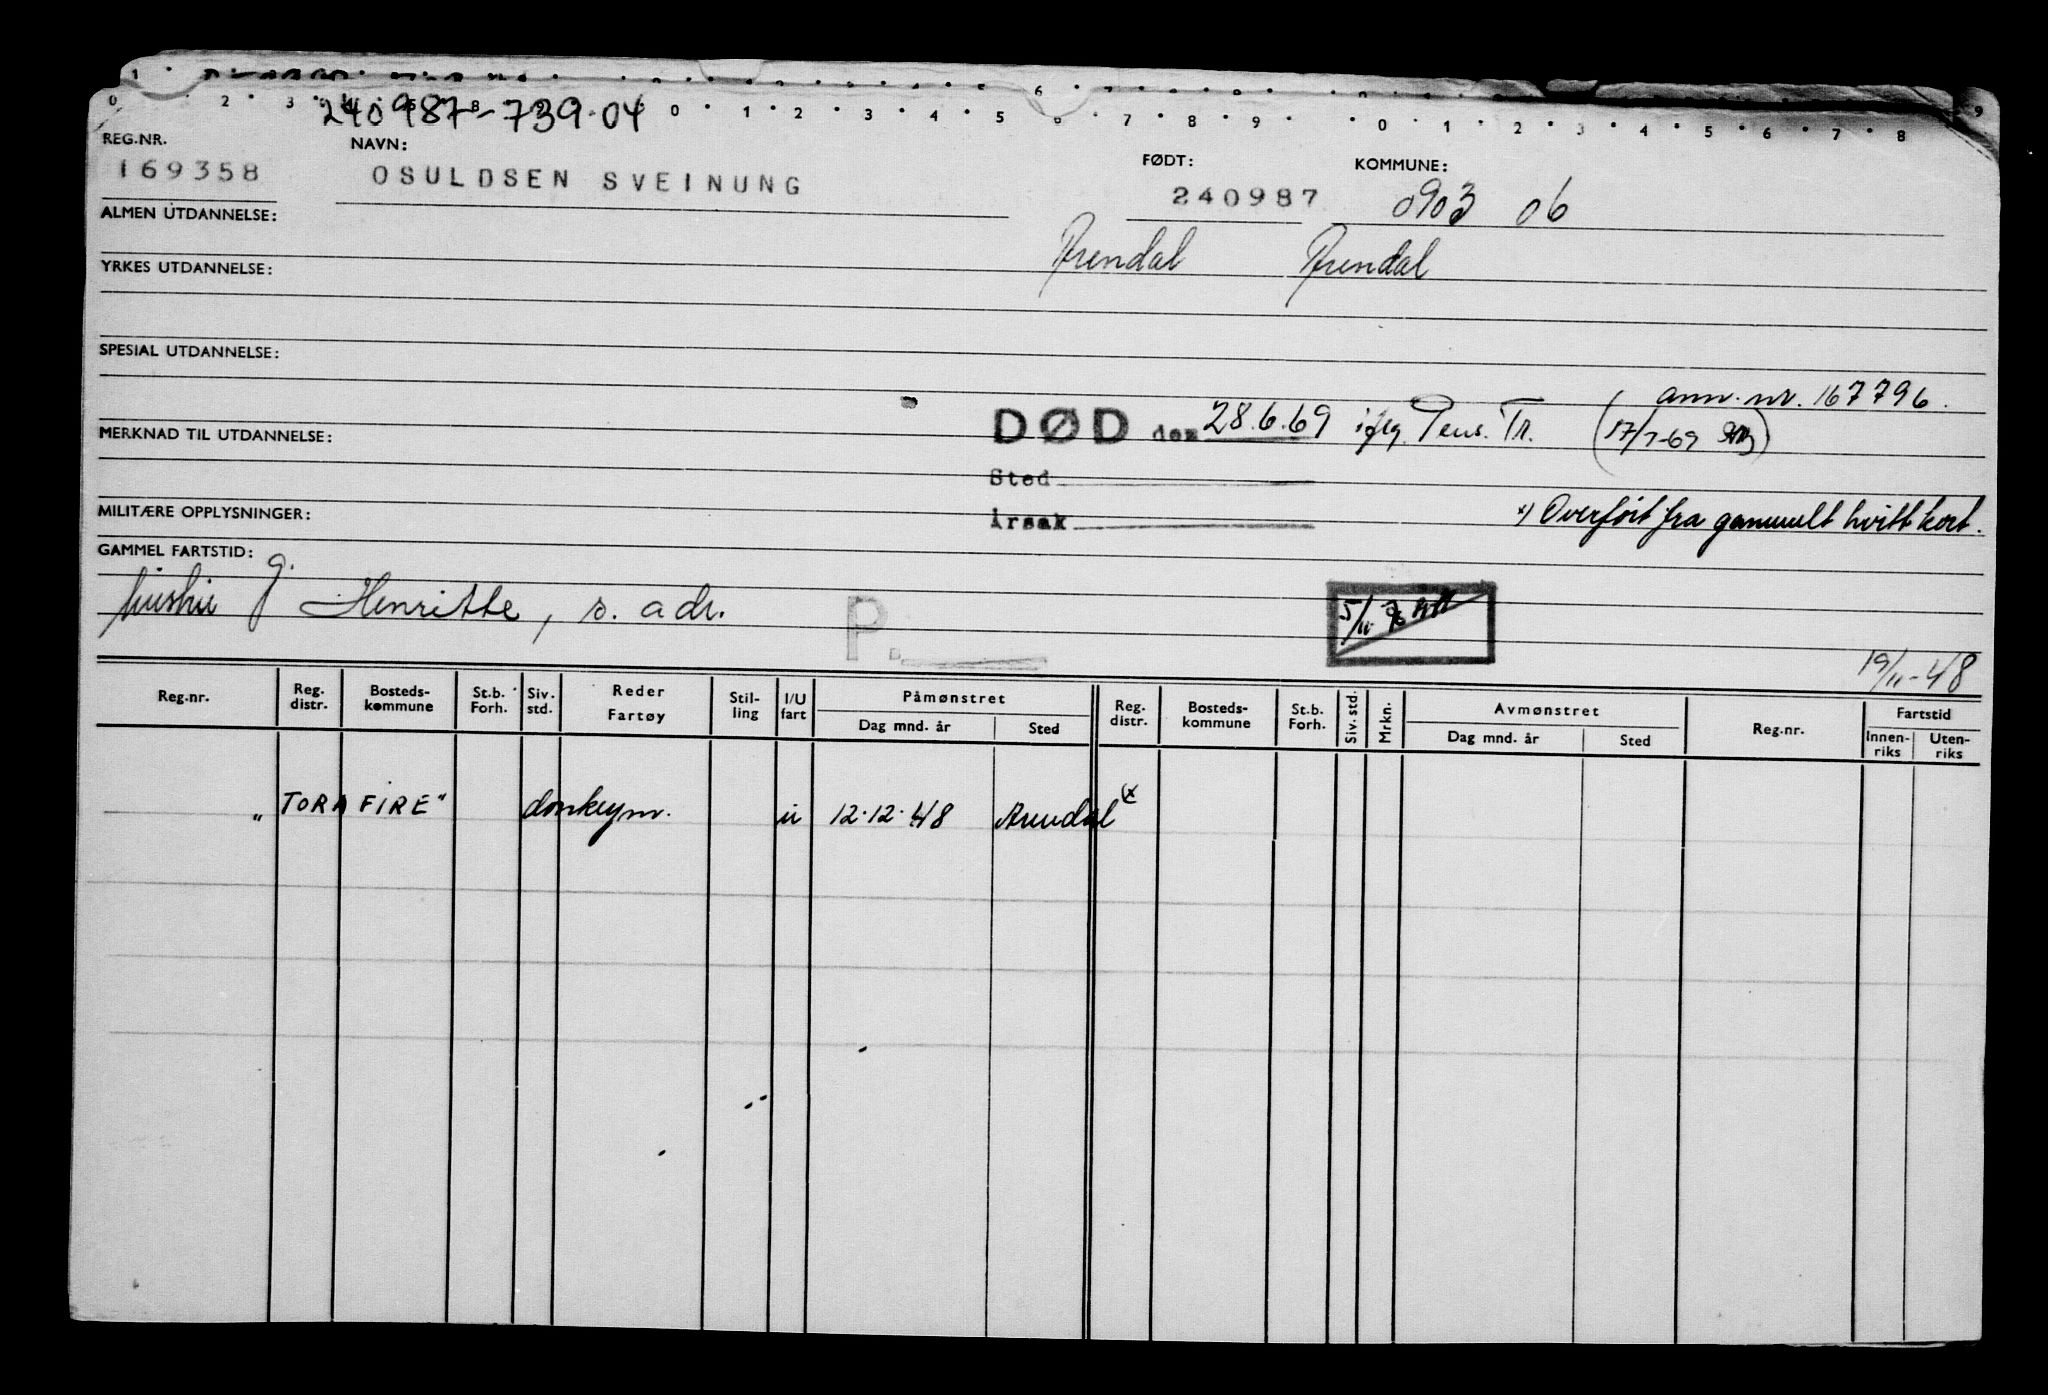 240987-739.04
REG.NR. NAVN: FØDT: KOMMUNE:
169358 OSULDSEN SVEINUNG 240987 0903 06
ALMEN UTDANNELSE:
Arendal Arendal
YRKES UTDANNELSE:
SPESIAL UTDANNELSE:
ann. nr. 167796.
DØD den 28.6.69 iflg. Pens. Tr. (17/7-69)
MERKNAD TIL UTDANNELSE:
Sted
MILITÆRE OPPLYSNINGER: Årsak x) Overført fra gammelt hvitt kort.
GAMMEL FARTSTID:
g. Henritte, s. adr. P. 5/11
19/11-48
Reg.nr. Reg. distr. Bosteds-kommune St.b. Forh. Siv. std. Reder Fartøy Stil-ling I/U fart Påmønstret Dag mnd. år Sted Reg. distr. Bosteds-kommune St.b. Forh. Siv. std. Mrkn. Avmønstret Dag mnd. år Sted Reg.nr. Fartstid Innen-riks Uten-riks
"TORAFIRE" donkeym. u 12.12.48 Arendal (x